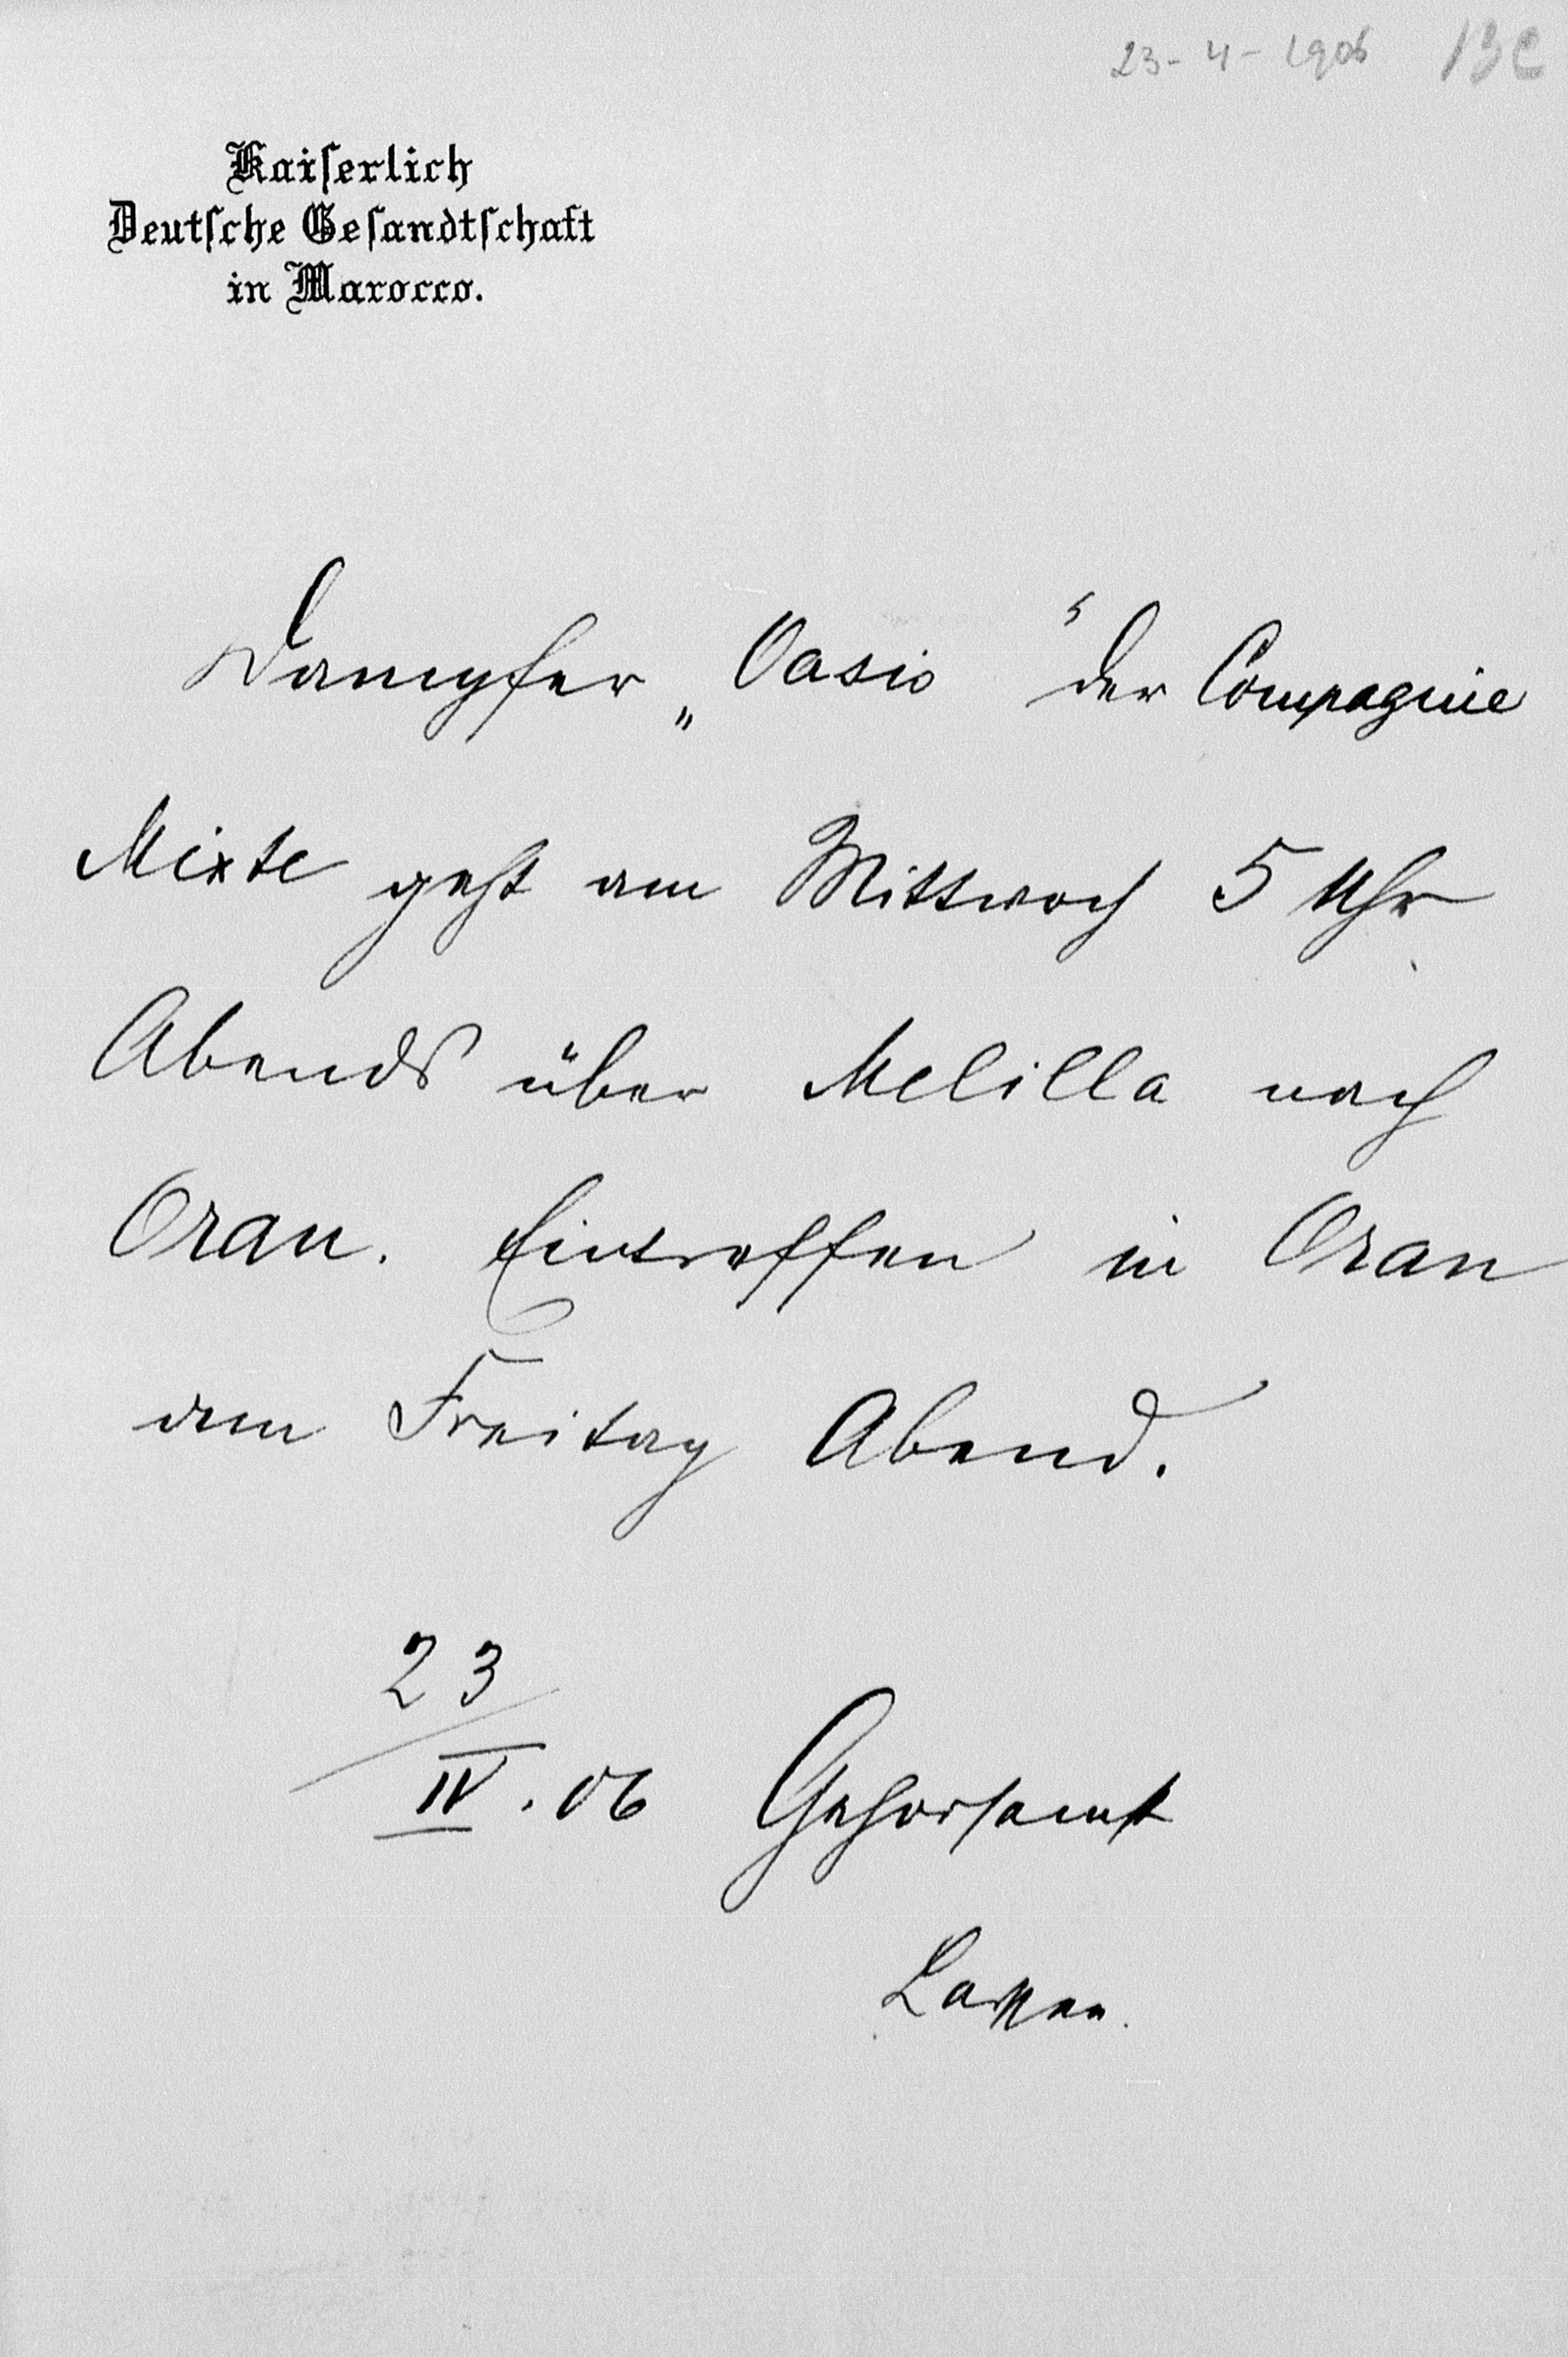 23-4-1906 13e
Kaiſerlich
Deutſche Geſandtſchaft
in Marocco.
Dampfer „Oasis“ der Compagnie
Mixte geht am Mittwoch 5 Uhr
Abends über Melilla nach
Oran. Eintreffen in Oran
am Freitag Abend.
23/IV.06 Gehorsamst